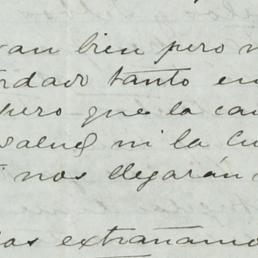 van bien pero n
rdado tanto en
pero que la ca
salud ni la cu
nos llegarán
as extrañamo